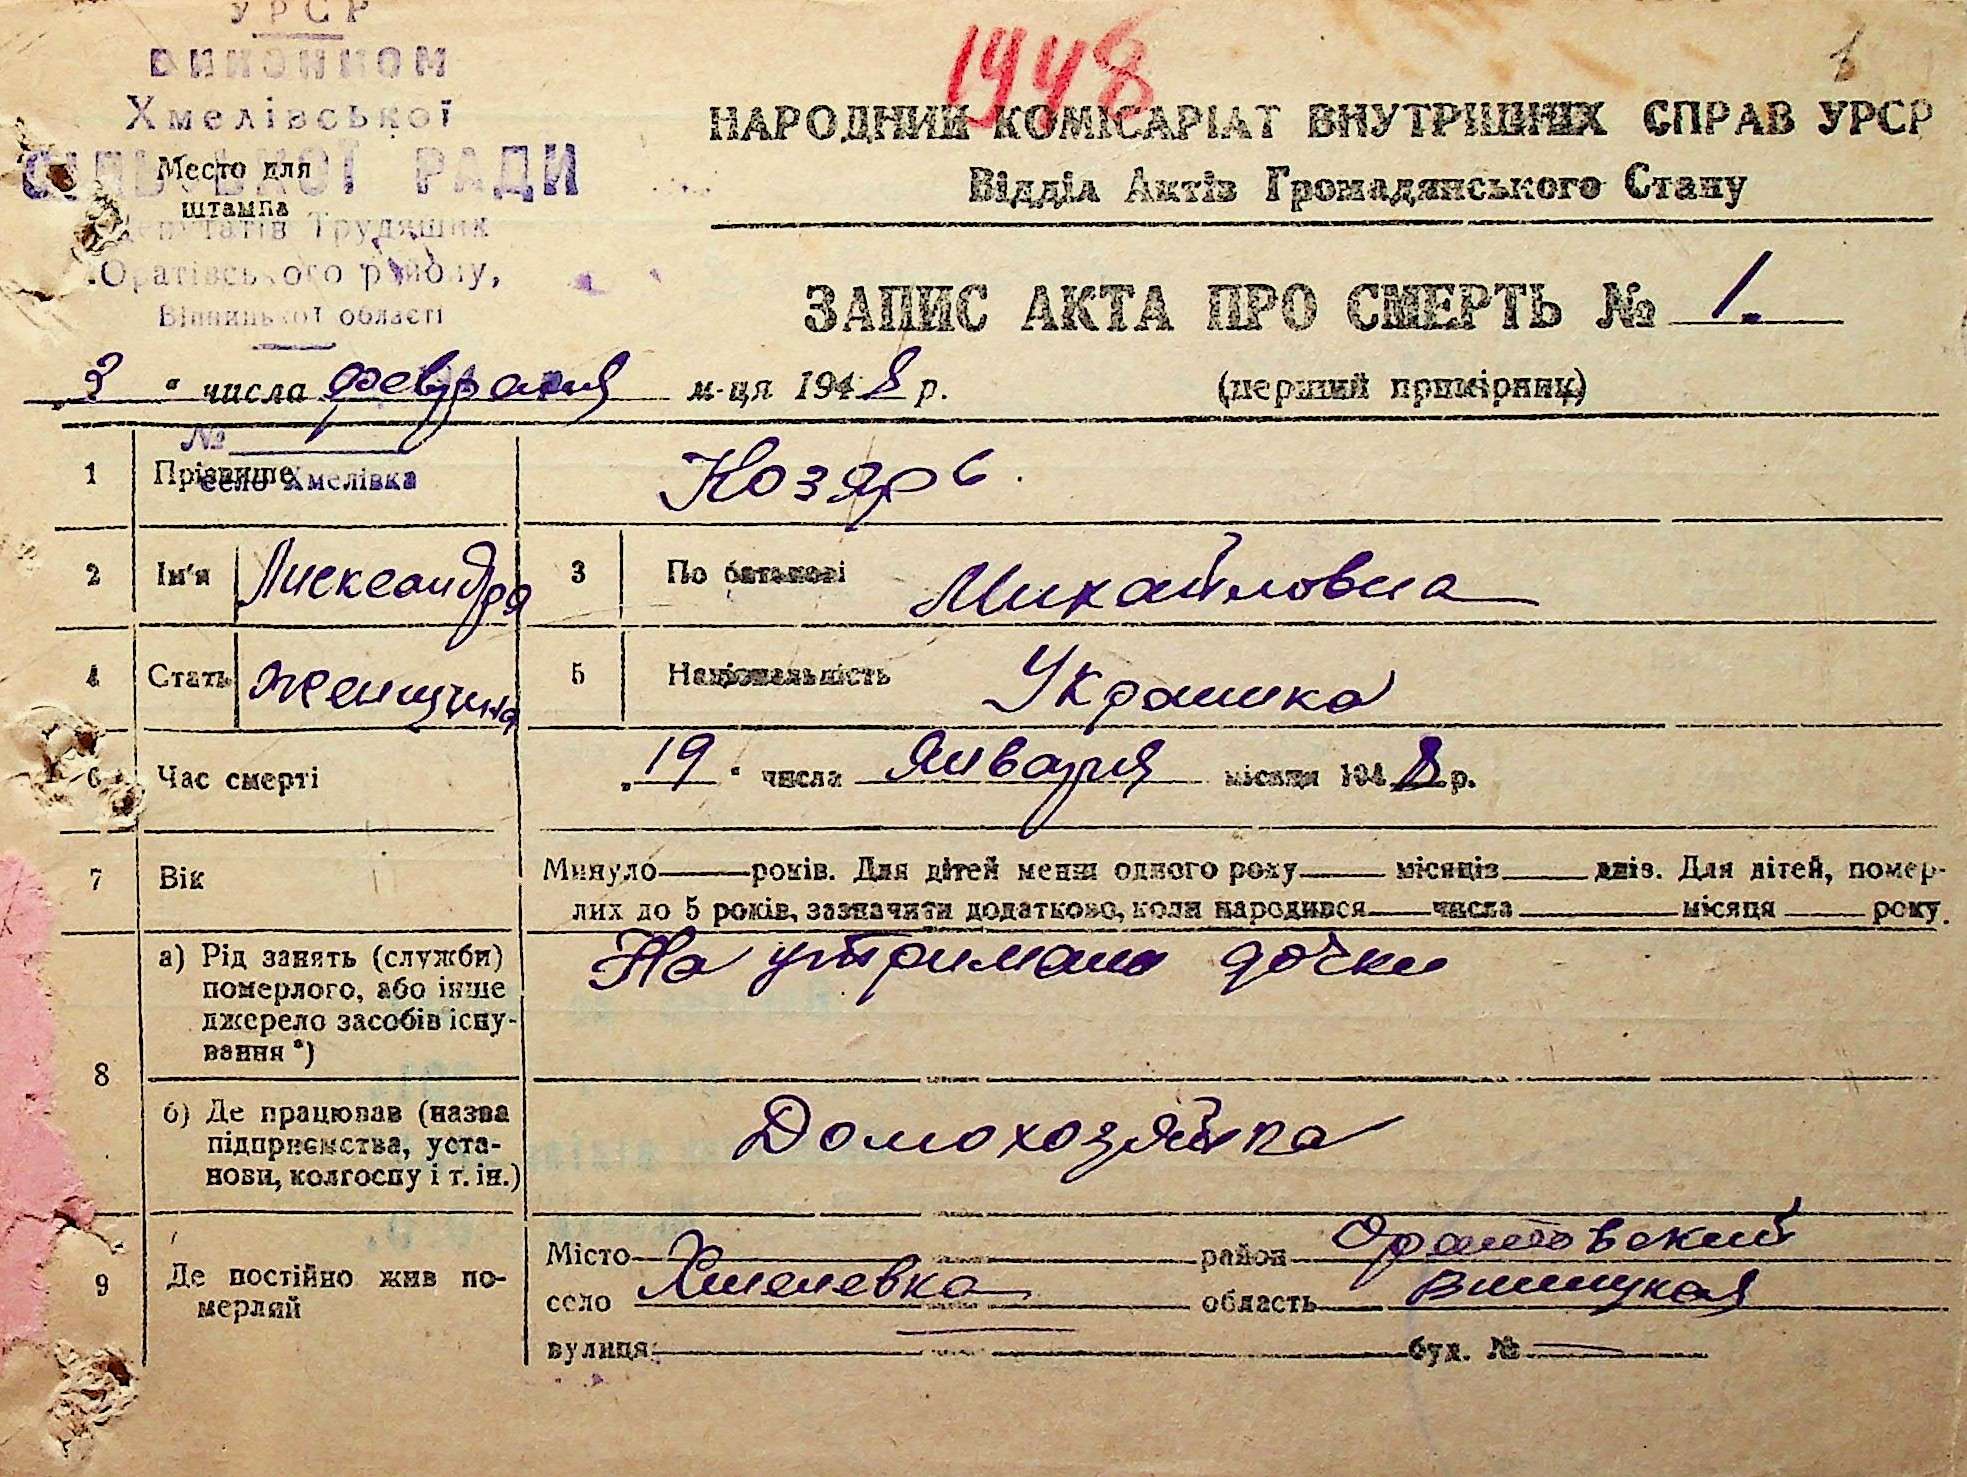 УРСР
ВИКОНКОМ
Хмелівської
СІЛЬСЬКОЇ РАДИ
Депутатів Трудящих
Оратівського району,
Вінницької області
Место для
штампа
№
село Хмелівка
1948
1
НАРОДНИЙ КОМІСАРІАТ ВНУТРІШНІХ СПРАВ УРСР
Відділ Актів Громадянського Стану
ЗАПИС АКТА ПРО СМЕРТЬ № 1.
„3 “ числа февраля м-ця 1948 р.
(перший примірник)
1 Прізвище Козярь.
2 Ім'я Александра 3 По батькові Михайловна
4 Стать женщина 5 Національність Украинка
6 Час смерті „19“ числа Января місяця 1948 р.
7 Вік Минуло — років. Для дітей менш одного року — місяців — днів. Для дітей, помер-
лих до 5 років, зазначити додатково, коли народився — числа — місяця — року.
8 а) Рід занять (служби)
померлого, або інше
джерело засобів існу-
вання*)
На утримані дочки
б) Де працював (назва
підприємства, уста-
нови, колгоспу і т. ін.)
Домохозяйка
9 Де постійно жив по-
мерлий
Місто — район Оратовский
село Хмелевка область Виницкая
вулиця — буд. № —